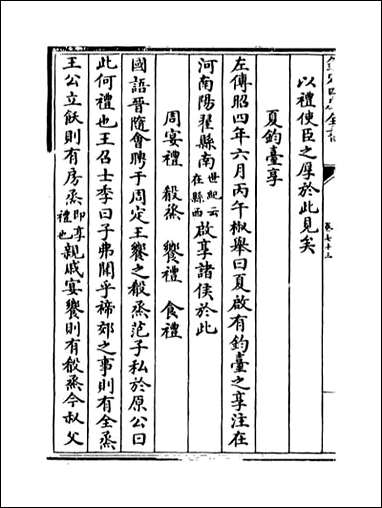 以禮使臣之厚於此見矣
夏鈞臺享
左傳昭四年六月丙午椒舉曰夏啟有鈞臺之享注在
河南陽翟縣南世紀云在縣西啟享諸侯於此
周宴禮 殽烝 饗禮 食禮
國語晉隨會聘于周定王饗之殽烝范子私於原公曰
此何禮也王召士季曰子弗聞乎禘郊之事則有全烝
王公立飫則有房烝即享禮也親戚宴饗則有殽烝今叔父
卷七十三